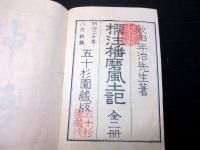 敷田年治先生著
標注播磨風土記 全二冊
明治二十年
八月新鐫
五十杉園藏版